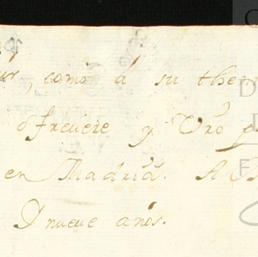 como a su the
ofreciere y Uro
en Madrid. A
Y nueve años.